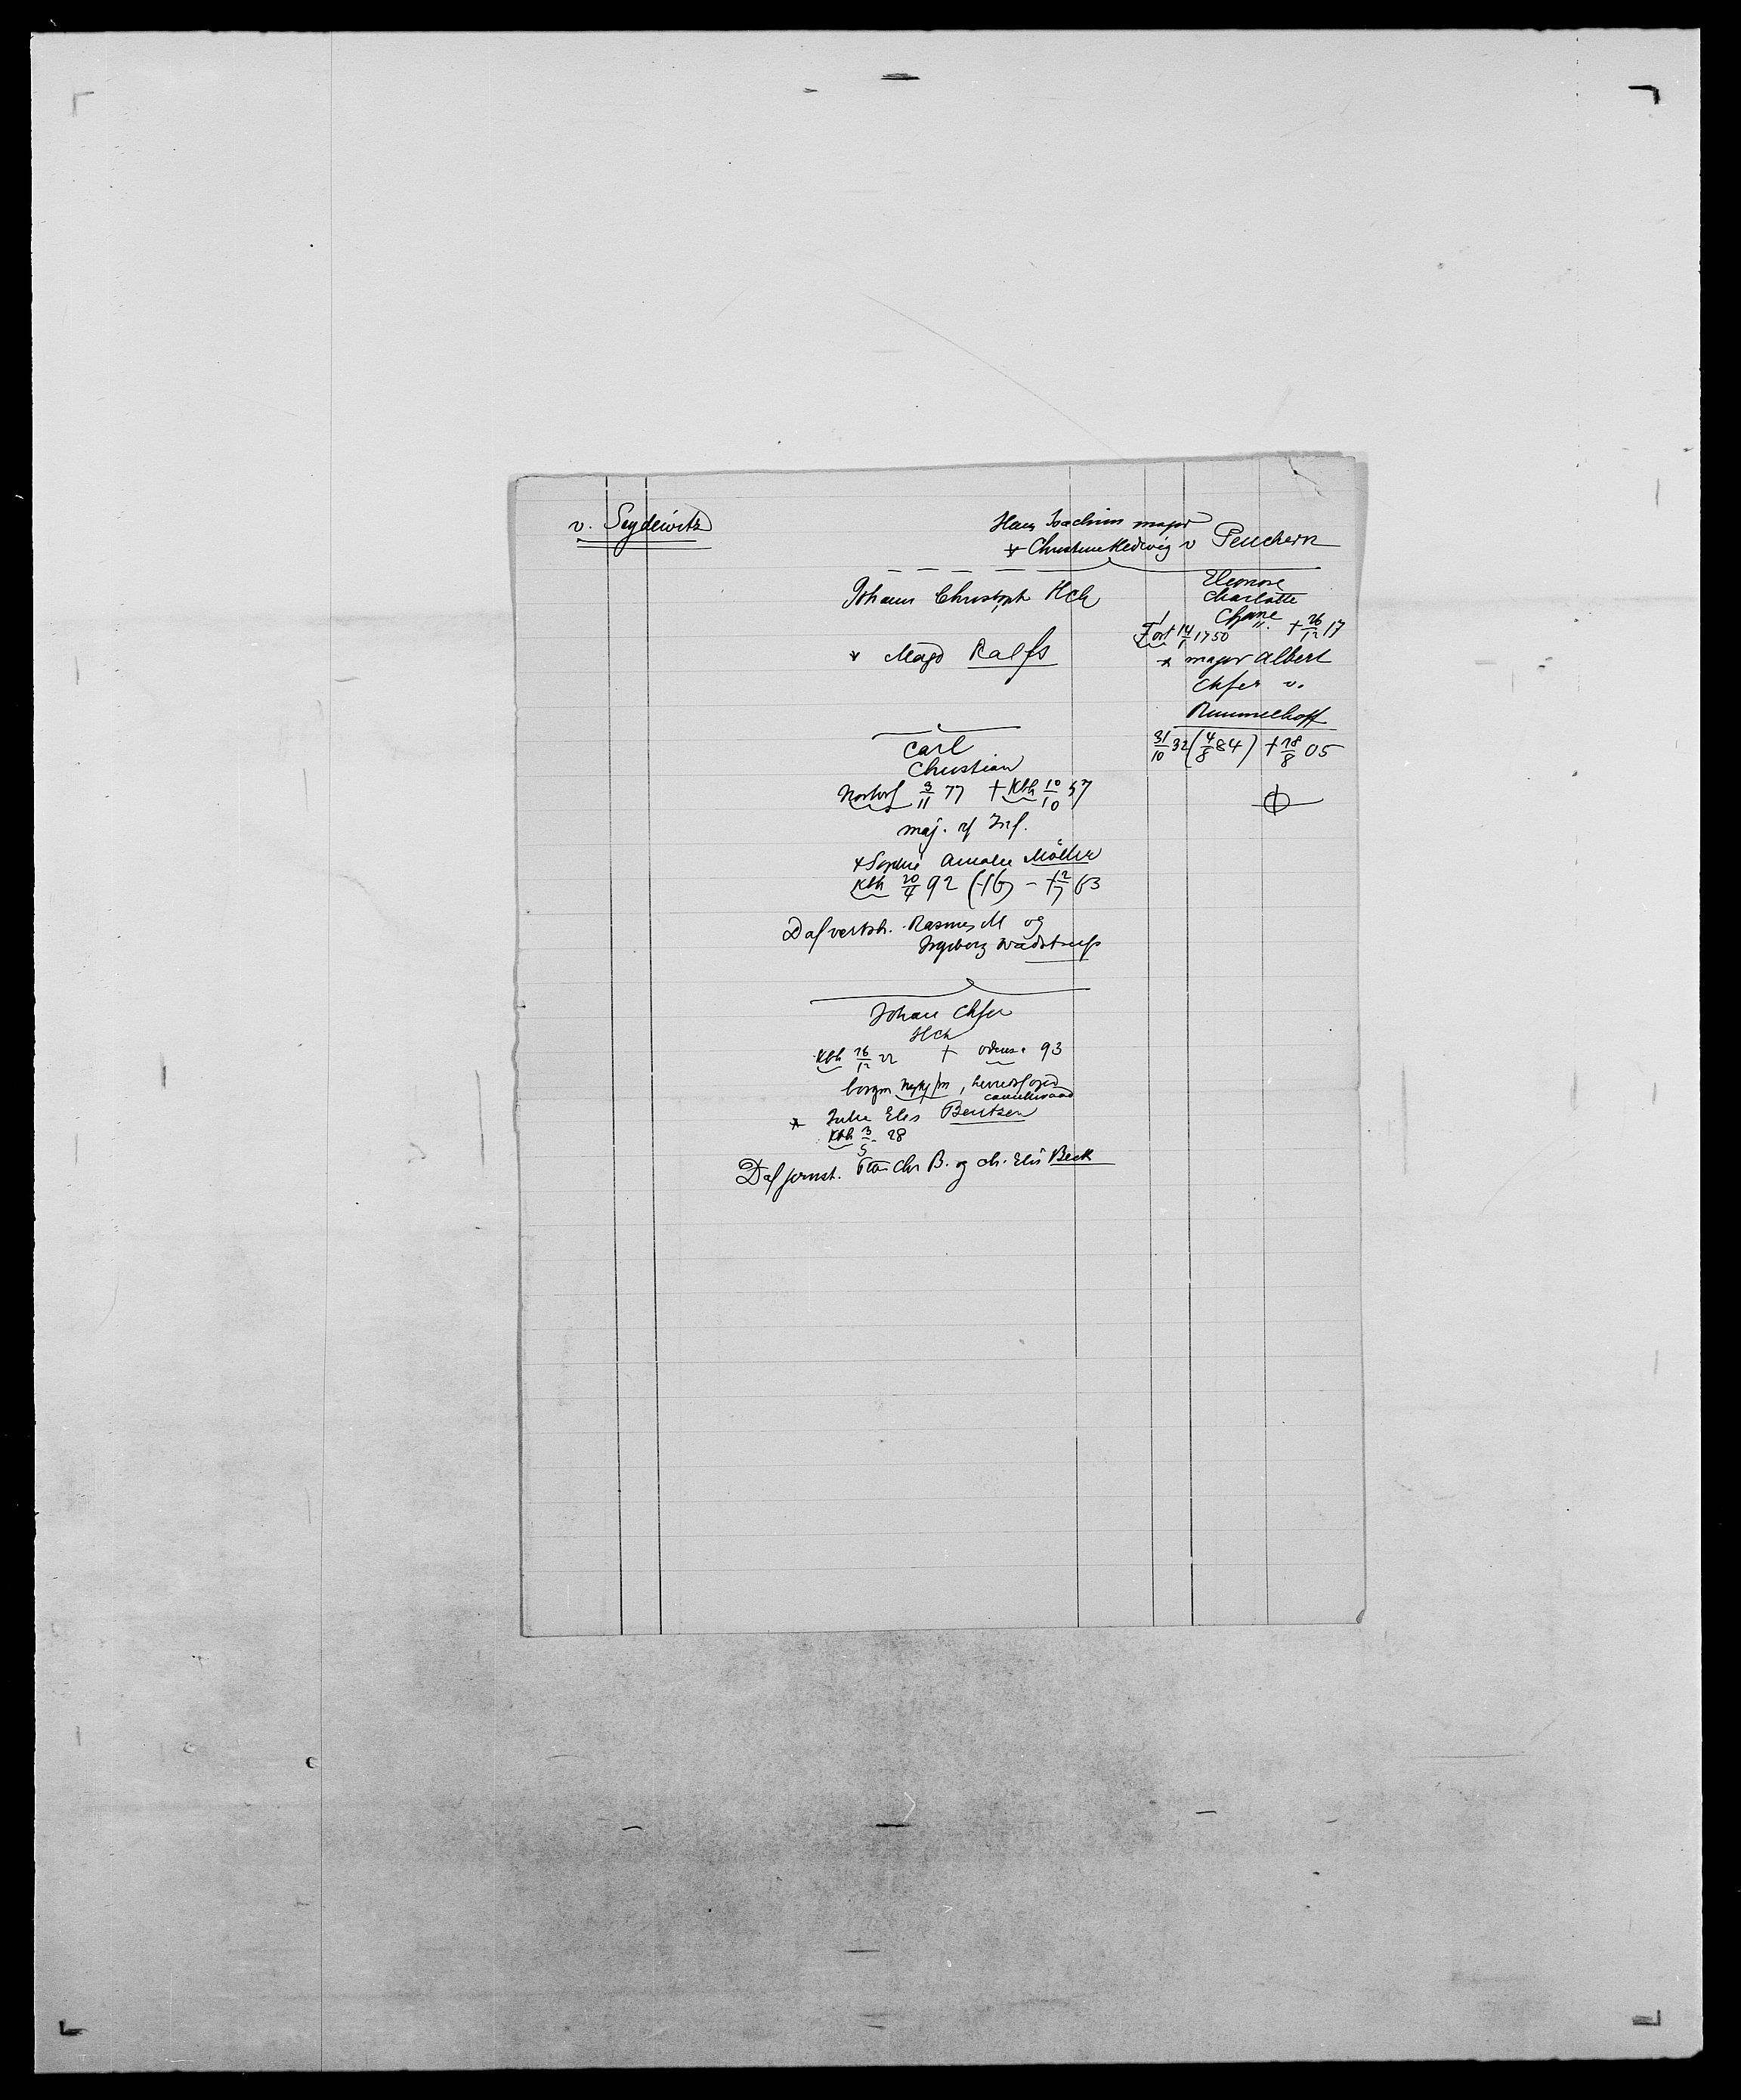 v. Seydewitz
Hans Joachim major
* Christine Hedwig v Peuchern
Johann Christoph Hch
* Magd Ralfs
Eleonore
Charlotte
Chjane
Fort 14/1 1750 † 26/12 17
* major Albert
Chfer v.
Rummelhoff
31/10 32 (4/8 84) † 18/8 05
Carl
Christian
Nortorf 3/11 77 † Kbh 10/10 57
maj. af Inf.
* Sophie Amalie Möller
Kbh 20/4 92 (16) - † 12/7 63
D af vertsh. Rasmus M og
Ingeborg Wadstrup
Johan Chfer
Hch
Kbh 16/12 22 † Odense 93
borgm, herredsfoged
cancelliraad
* Julie Elis Bentzen
Kbh 3/5 28
D af Chr B. og M. Elis Beck